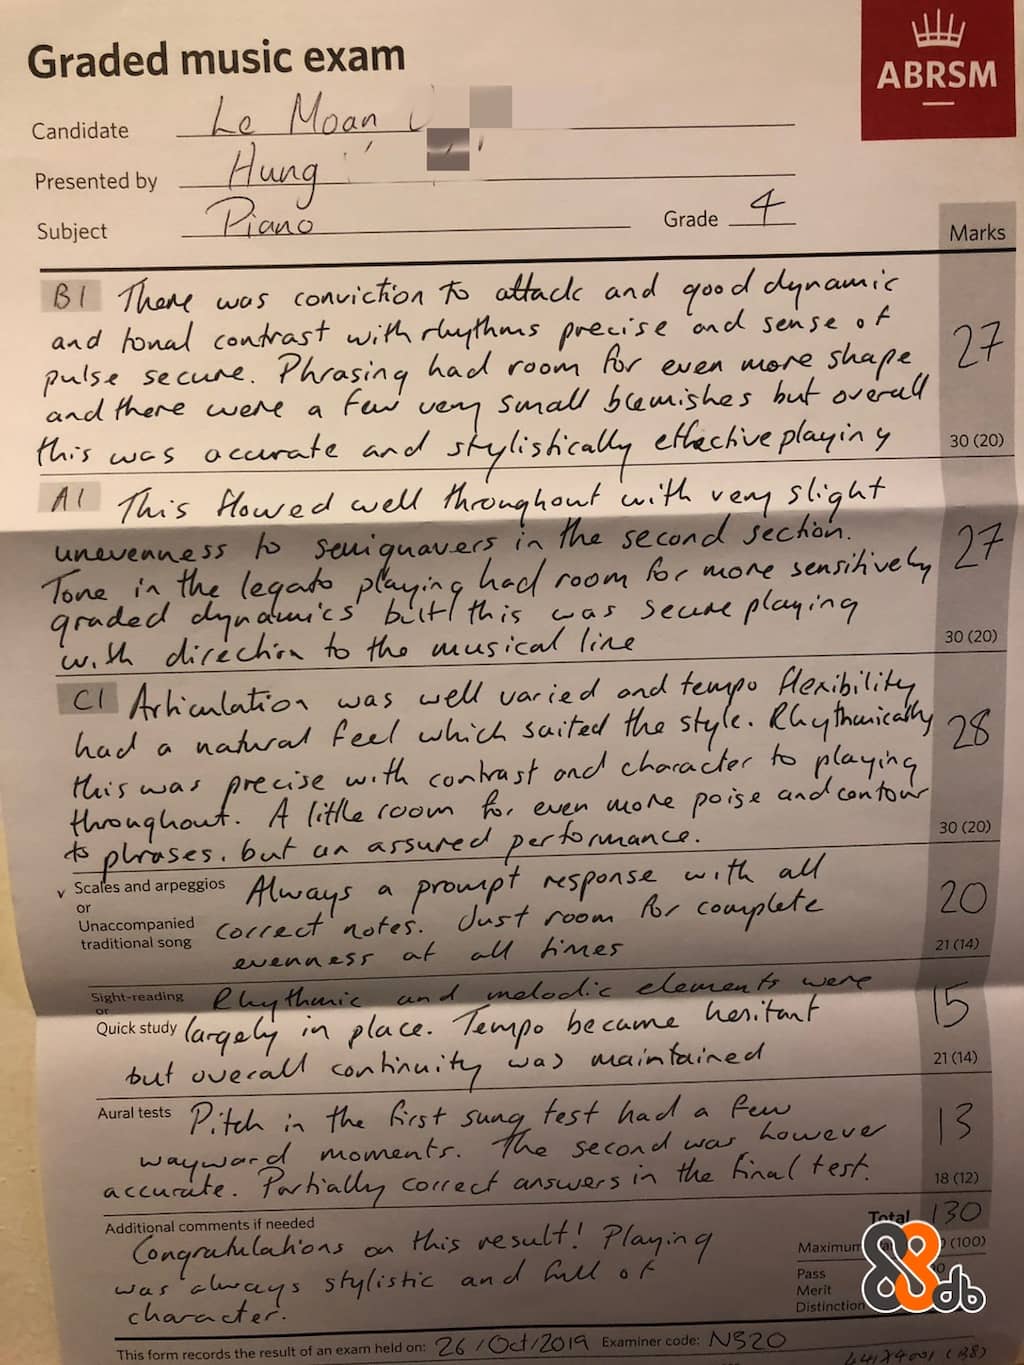 Graded music exam
ABRSM
Candidate Le Moan
Presented by Hung
Subject Piano Grade 4
Marks
B1 There was conviction to attack and good dynamic
and tonal contrast with rhythms precise and sense of
pulse secure. Phrasing had room for even more shape
and there were a few very small blemishes but overall
this was accurate and stylistically effective playing
27
30 (20)
A1 This flowed well throughout with very slight
unevenness to semiquavers in the second section.
Tone in the legato playing had room for more sensitively
graded dynamics but this was secure playing
with direction to the musical line
27
30 (20)
C1 Articulation was well varied and tempo flexibility
had a natural feel which suited the style. Rhythmically
this was precise with contrast and character to playing
throughout. A little room for even more poise and contour
to phrases, but an assured performance.
28
30 (20)
v Scales and arpeggios
or
Unaccompanied
traditional song
Always a prompt response with all
correct notes. Just room for complete
evenness at all times
20
21 (14)
Sight-reading
or
Quick study
Rhythmic and melodic elements were
largely in place. Tempo became hesitant
but overall continuity was maintained
15
21 (14)
Aural tests Pitch in the first sung test had a few
wayward moments. The second was however
accurate. Partially correct answers in the final test.
13
18 (12)
Additional comments if needed
Congratulations on this result! Playing
was always stylistic and full of
character.
Total 130
Maximum (100)
Pass
Merit
Distinction
88db
This form records the result of an exam held on: 26/Oct/2019 Examiner code: N320